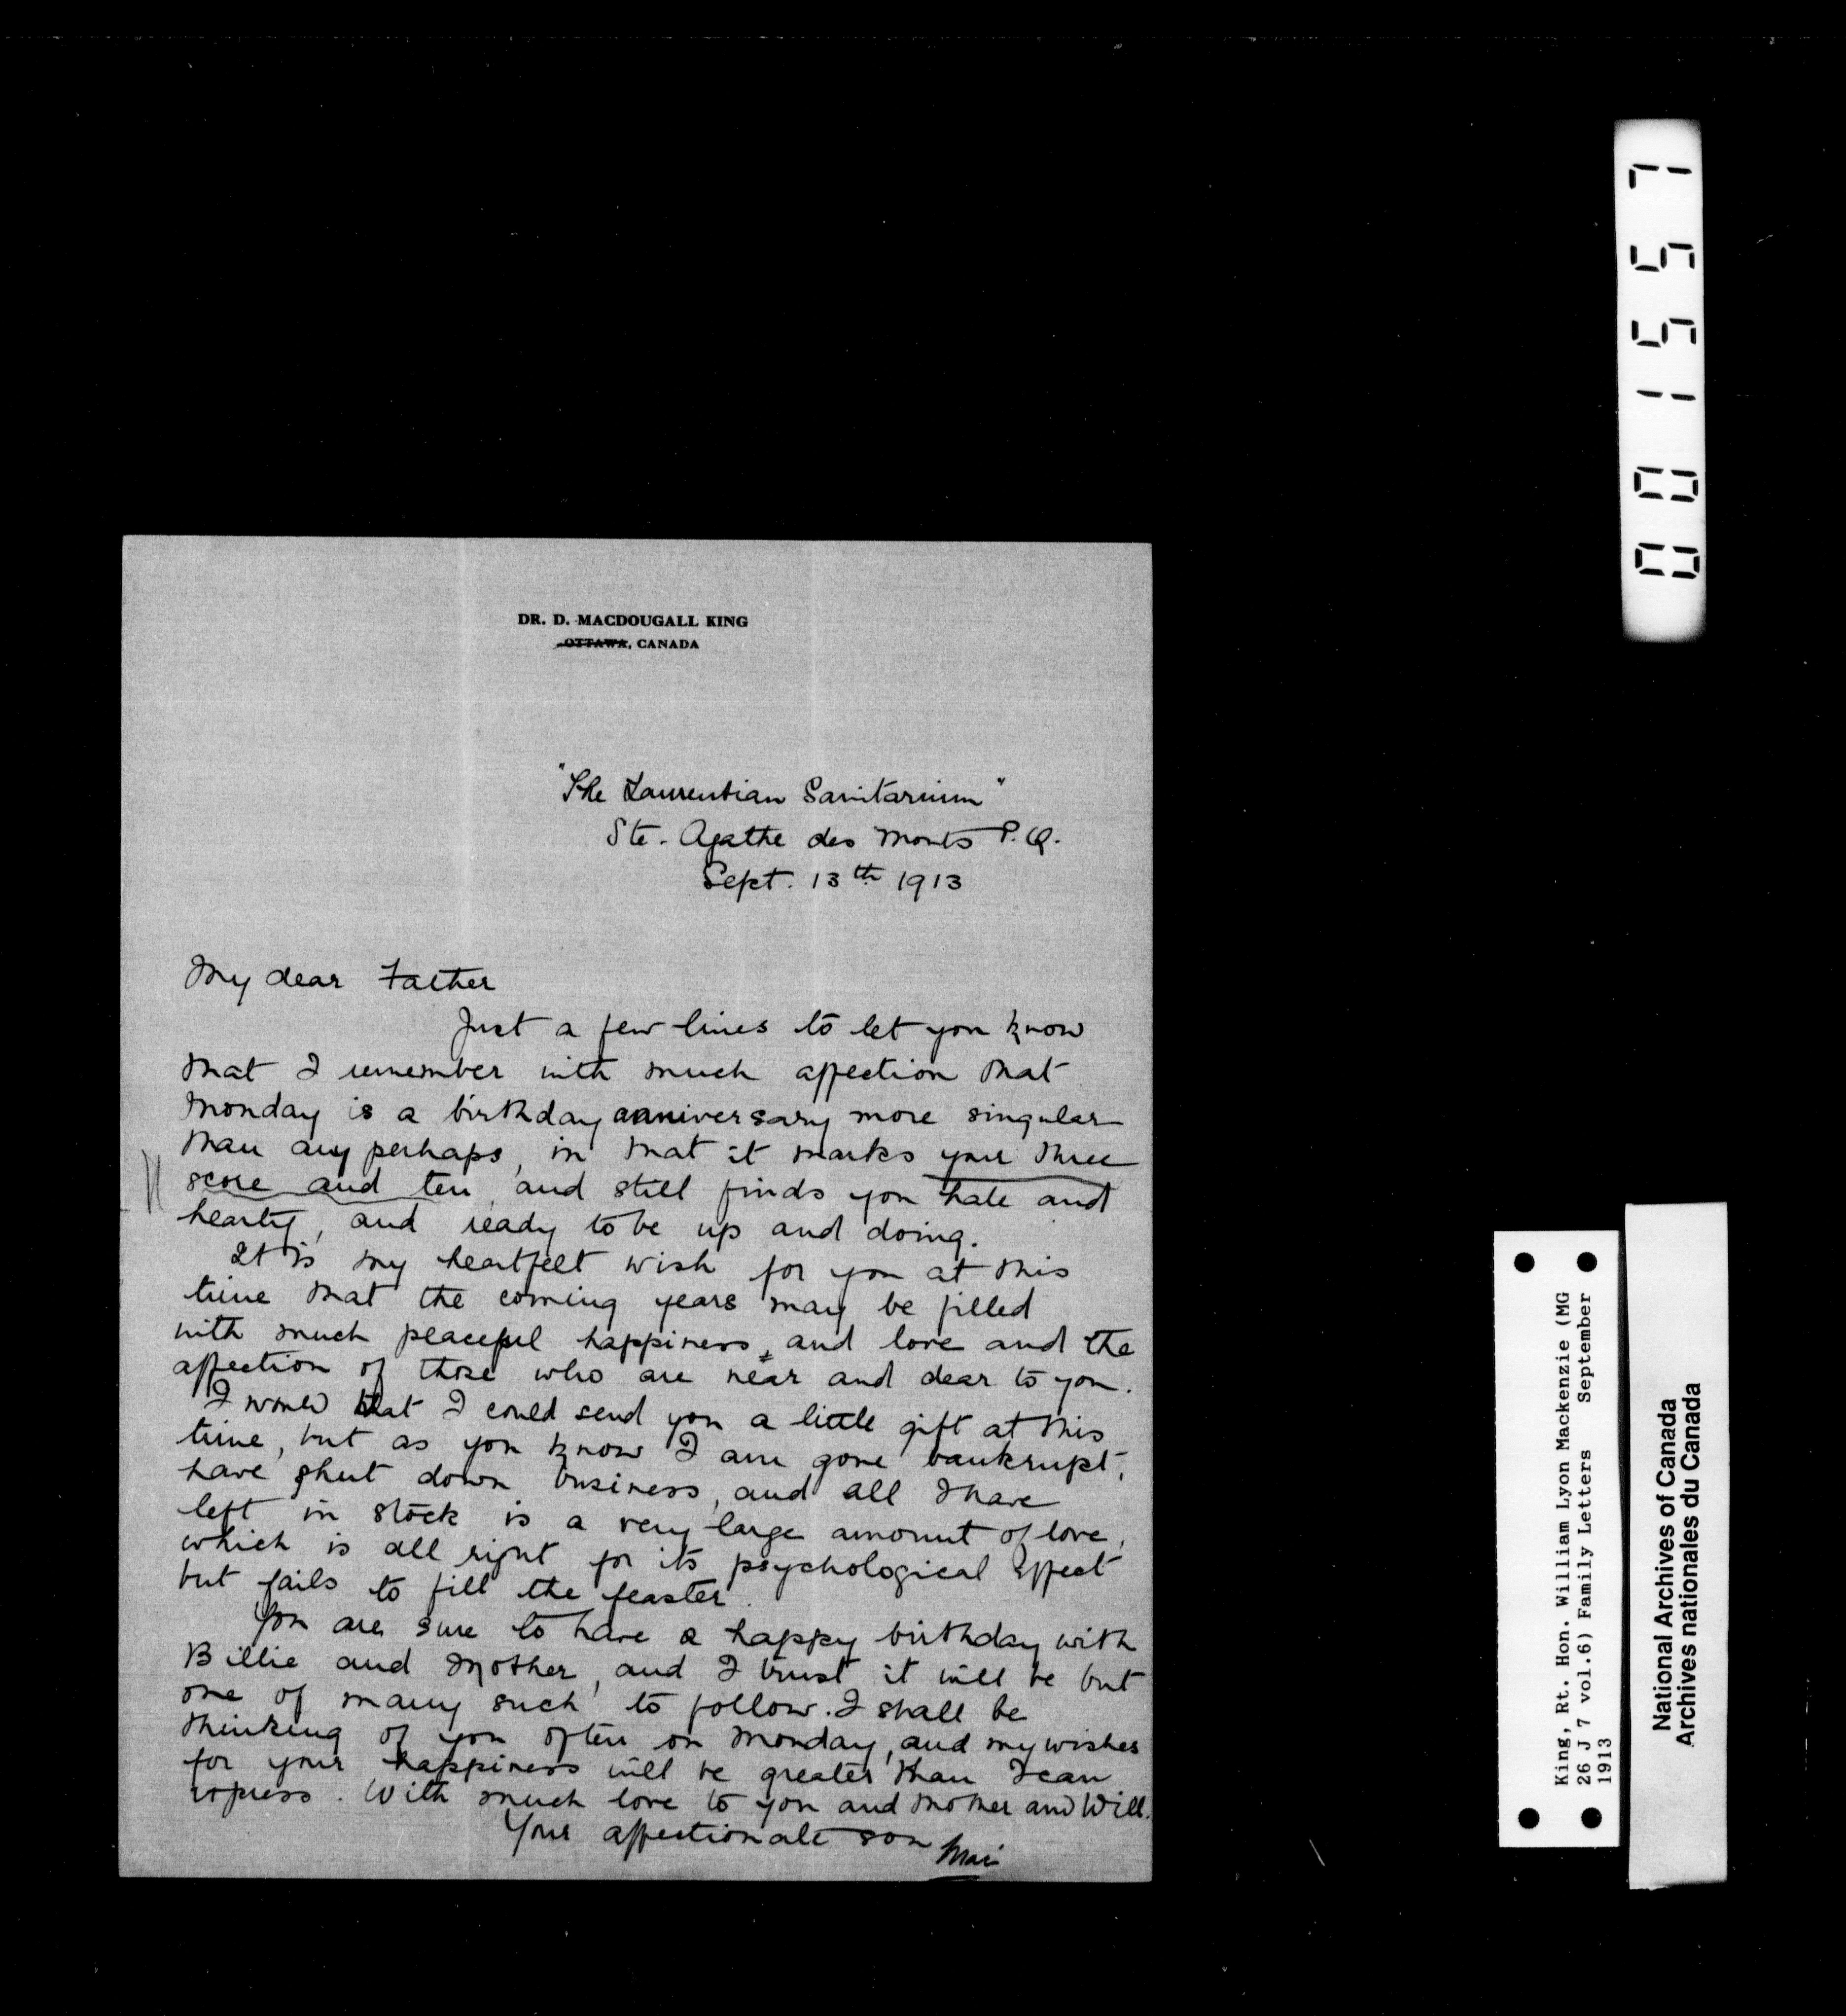 DR. D. MACDOUGALL KING
OTTAWA, CANADA
"The Laurentian Sanitarium"
Ste. Agathe des Monts P.Q.
Sept. 13th 1913
My dear Father
Just a few lines to let you know
that I remember with much affection that
Monday is a birthday anniversary more singular
than any perhaps, in that it marks your three
score and ten, and still finds you hale and
hearty, and ready to be up and doing.
It is my heartfelt wish for you at this
time that the coming years may be filled
with much peaceful happiness, and love and the
affection of those who are near and dear to you.
I would that I could send you a little gift at this
time, but as you know I am gone bankrupt,
have shut down business, and all I have
left in stock is a very large amount of love,
which is all right for its psychological Effect
but fails to fill the feaster.
You are sure to have a happy birthday with
Billie and Mother, and I trust it will be but
one of many such to follow. I shall be
thinking of you often on Monday, and my wishes
for your happiness will be greater than I can
express. With much love to you and Mother and Will.
Your affectionate son
Mac
001557
King, Rt. Hon. William Lyon Mackenzie (MG
26 J 7 vol.6) Family Letters September
1913
National Archives of Canada
Archives nationales du Canada